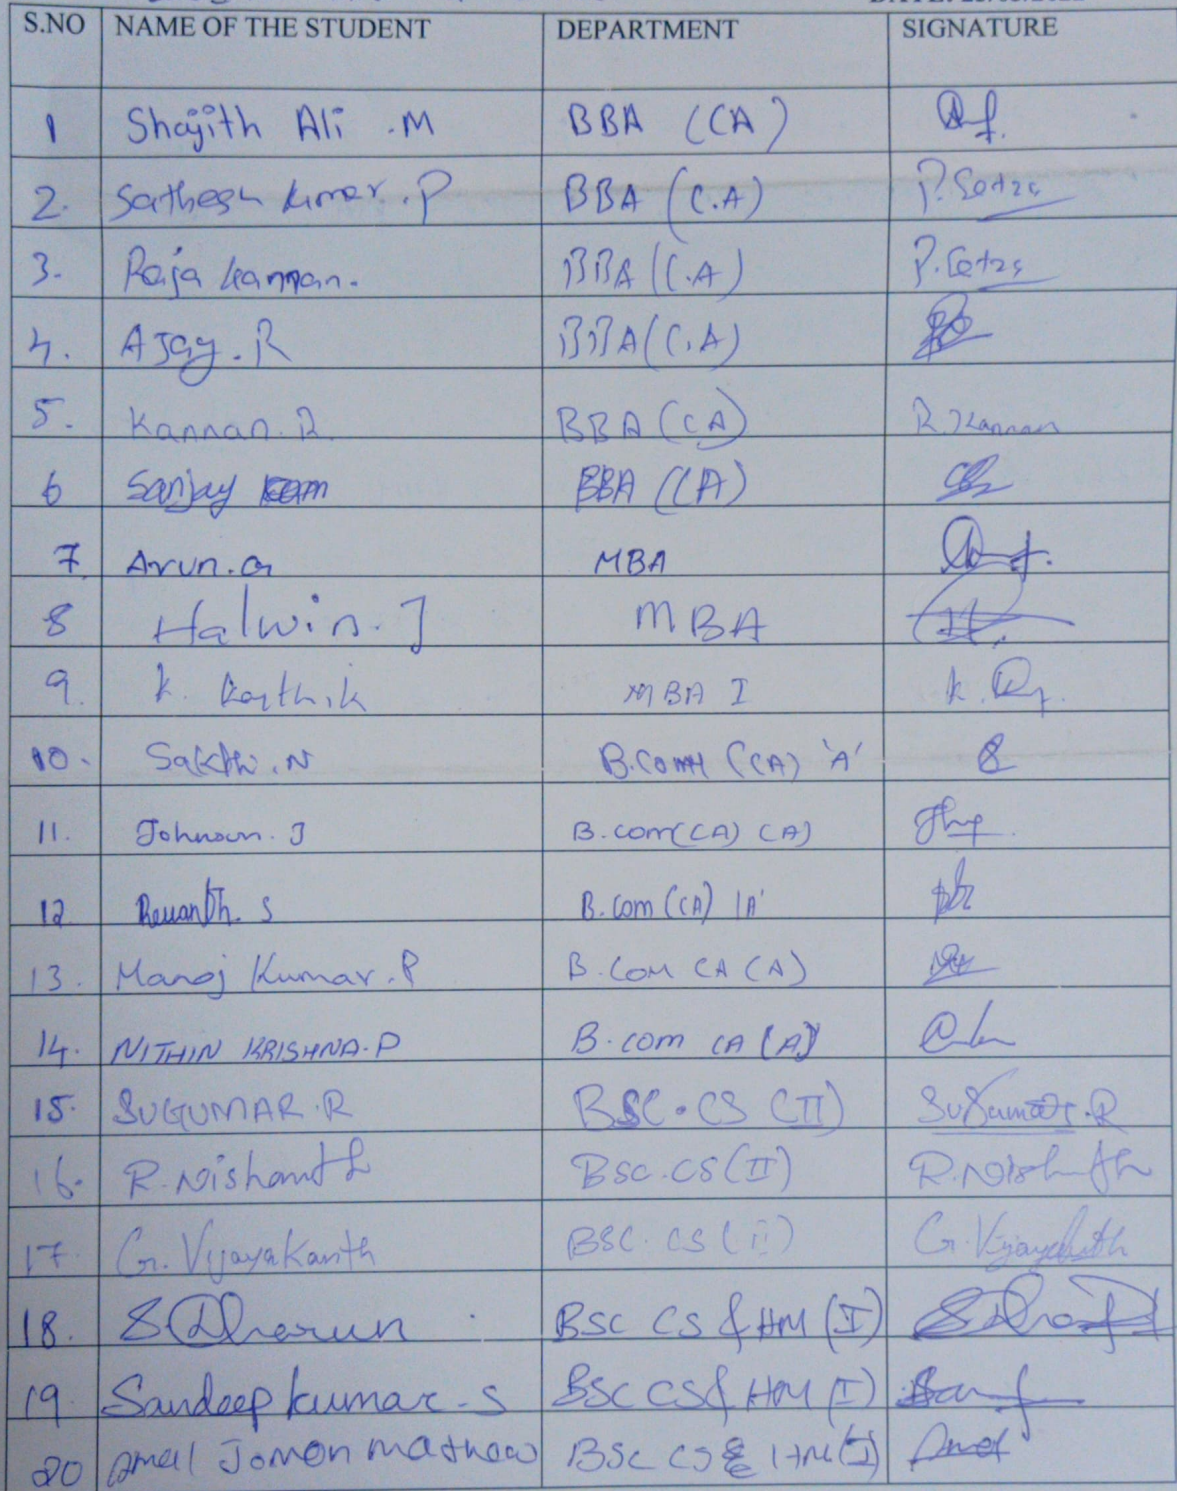 S.NO NAME OF THE STUDENT DEPARTMENT SIGNATURE
1 Shajith Ali .M BBA (CA)
2. Sathesh Kumar .P BBA (C.A) P.
3. Raja Kannan. BBA (C.A) P.
4. AJay. R BBA (C.A)
5. Kannan. R BBA (CA) R. Kannan
6 Sanjay BBA (CA)
7. Arun. G MBA
8 Halwin. J MBA
9. K. Karthik MBA I K.
10. Sakthi. N B.COM (CA) 'A'
11. Johnson. J B.com (CA) (A)
12 Revanth. S B.com (CA) 'A'
13. Manoj Kumar. P B.Com CA (A)
14. NITHIN KRISHNA. P B.com CA (A)
15. SUGUMAR. R BSC. CS (II) Sugumar. R
16. R. Nishanth BSC. CS (II) R. Nishanth
17. G. Vijayakanth BSC. CS (II) G. Vijayakanth
18. S Dharun BSC CS & HM (I)
19. Sandeep kumar. S BSC CS & HM (I)
20 Amal Jomon mathew BSC CS & HM (I) Amal